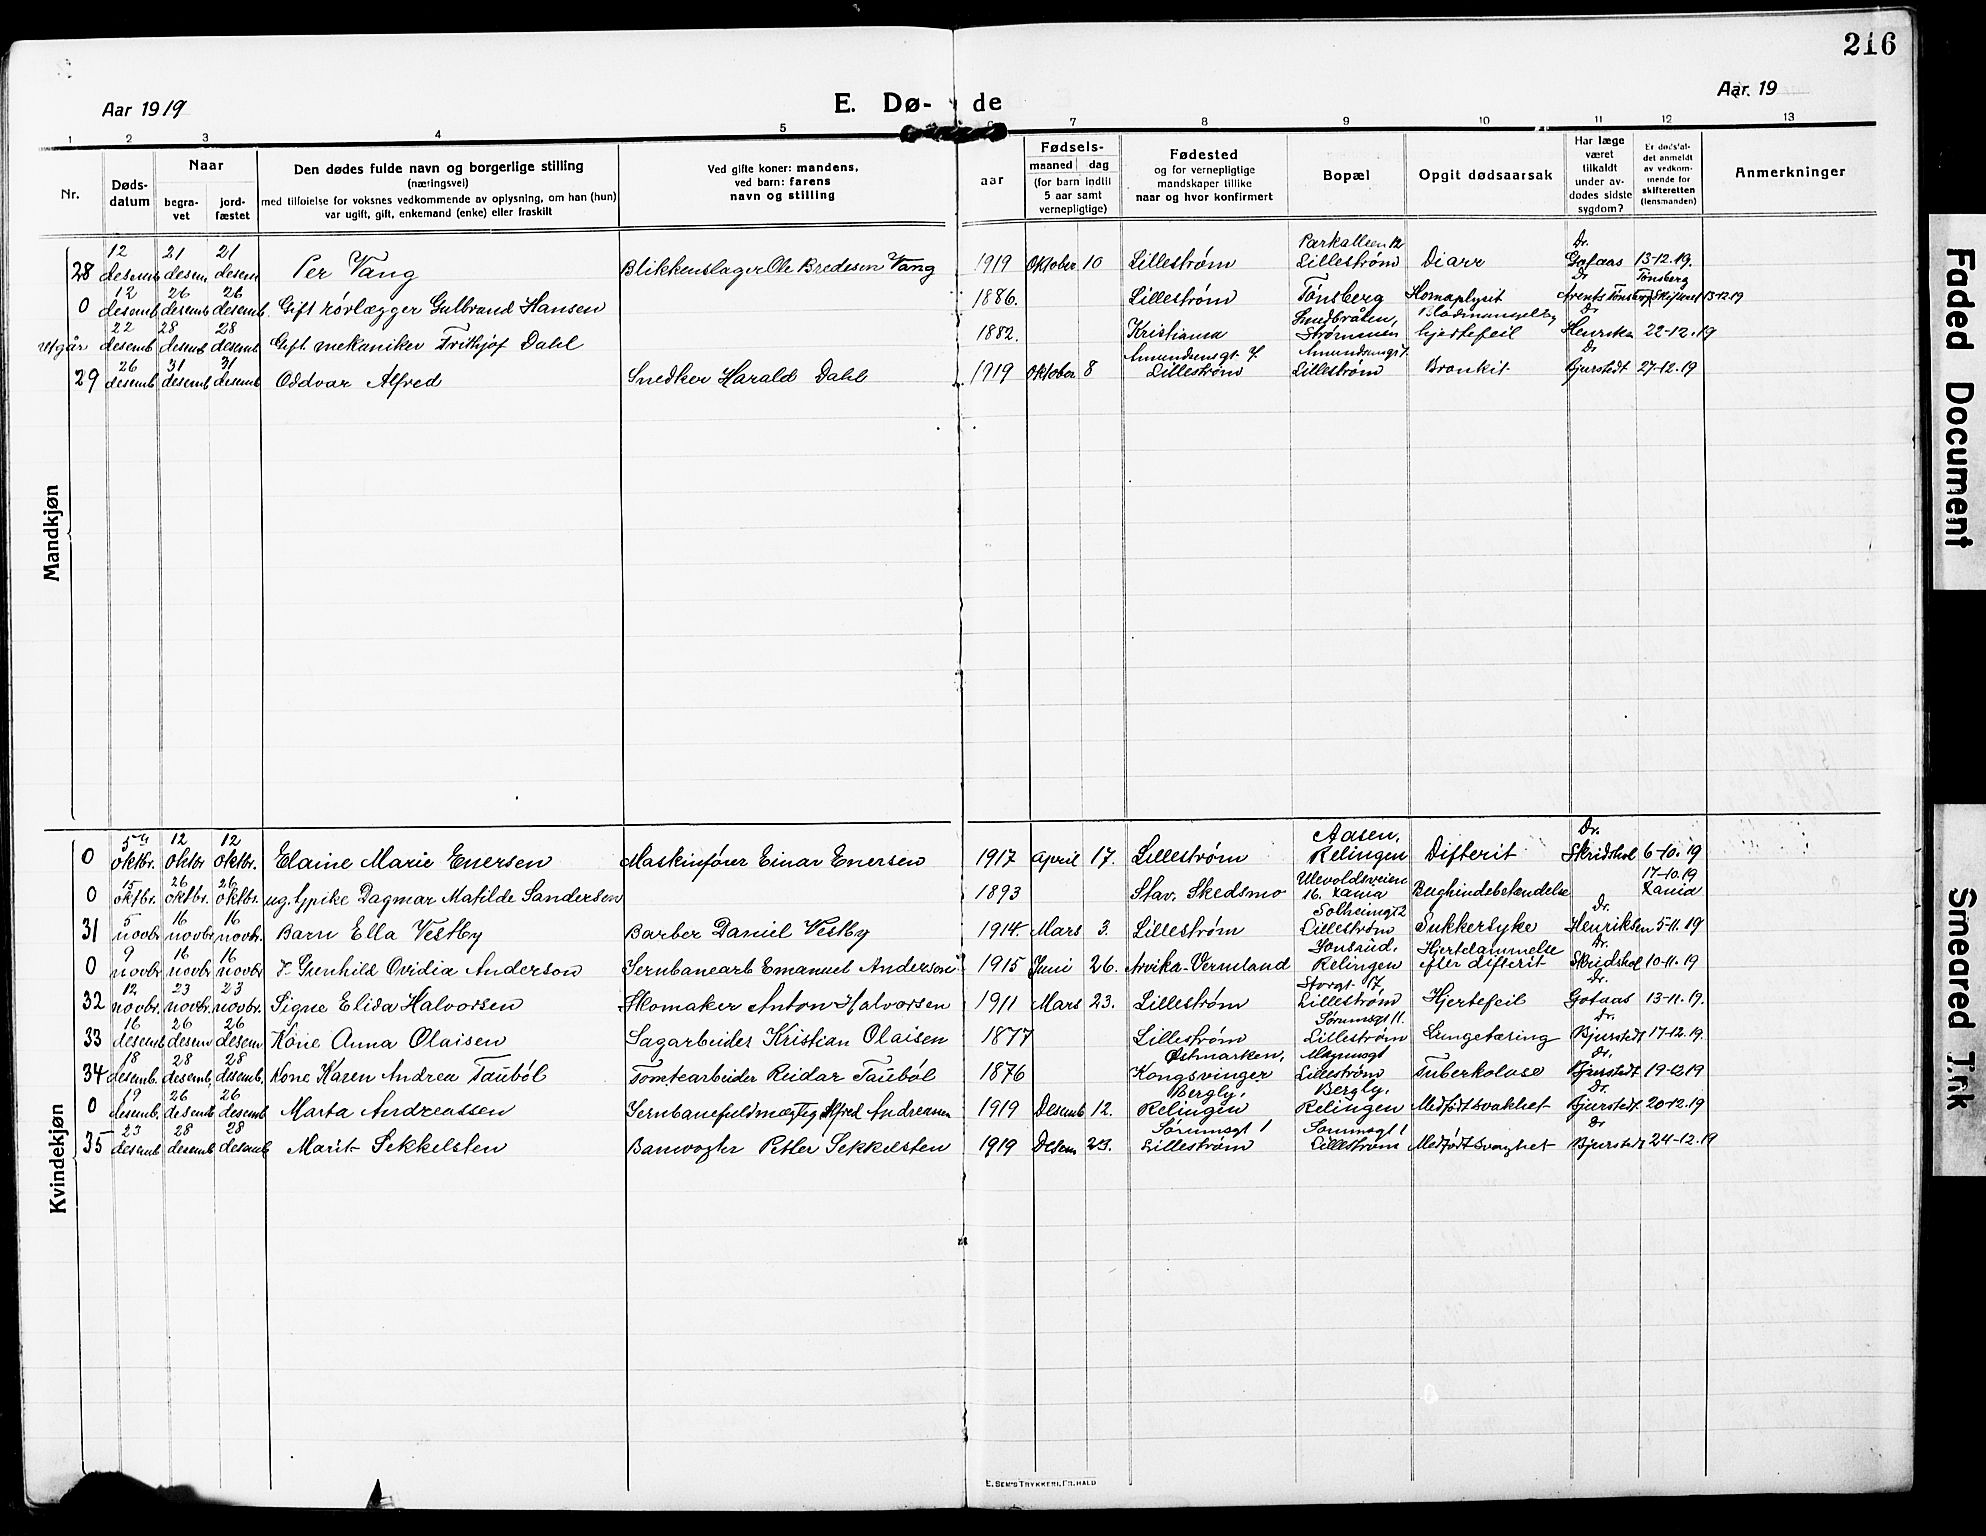 216
Aar 1919
E. Dø- de
Aar. 19
1 2 3 4 5 6 7 8 9 10 11 12 13
Nr.
Døds-
datum
Naar
begra-
vet
jord-
fæstet
Den dødes fulde navn og borgerlige stilling
(næringsvei)
med tilføielse for voksnes vedkommende av oplysning, om han (hun)
var ugift, gift, enkemand (enke) eller fraskilt
Ved gifte koner: mandens,
ved barn: farens
navn og stilling
aar
Fødsels-
maaned dag
(for barn indtil
5 aar samt
vernepligtige)
Fødested
og for vernepligtige
mandskaper tillike
naar og hvor konfirmert
Bopæl
Opgit dødsaarsak
Har læge
været
tilkaldt
under av-
dødes sidste
sygdom?
Er dødsfal-
det anmeldt
av vedkom-
mende for
skifteretten
(lensmanden)
Anmerkninger
Mandkjøn
12 21 21 Parkalleen 12 Dr.
28 desemb desem desem Per Vang Blikkenslager Ole Bredesen Vang 1919 Oktober 10 Lillestrøm Lillestrøm Diarr Gotaas 13-12.19.
12 26 26 Dr Tønsberg
0 desemb desemb desemb. Gift rørlægger Gulbrand Hansen 1886. Lillestrøm Tønsberg 13-12.19
22 28 28 Smedbråten, Dr
utgår desemb desemb desemb Gift mekaniker Frithjof Dahl 1882. Kristiania Strømmen hjertefeil 22-12.19
26 31 31 Amundsensgt. 7 Amundsensgt 7. Dr
29 desemb desemb desemb Oddvar Alfred Snedker Harald Dahl 1919 Oktober 8 Lillestrøm Lillestrøm Bronkit Bjurstedt 27-12.19
Kvindekjøn
5 12 12 Aasen, Dr.
0 oktbr. oktbr oktbr. Elaine Marie Enersen Maskinfører Einar Enersen 1917 April 17. Lillestrøm Relingen Difterit Skridshol 6-10.19
15 26 26 Ulevoldsveien 17-10.19
0 oktbr. oktbr. oktbr. ug. pike Dagmar Matilde Sandersen 1893 Stav. Skedsmo 16. Xania Bughindebetændelse Xania
5 16 16 Solheimgt 2 Dr.
31 novbr novbr novbr. Barn Ella Vestby Barber Daniel Vestby 1914. Mars 3. Lillestrøm Lillestrøm Sukkersyke Henriksen 5-11.19
9 16 16 Jonsrud, Hjertelammelse Dr.
0 novbr novbr novbr Gunhild Ovidia Anderson Jernbanearb Emanuel Anderson 1915 Juni 26. Arvika-Vermland Relingen efter difterit Skridshol 10-11.19
12 23 23 Storgt. 17, Dr.
32 novbr. novbr. novbr. Signe Elida Halvorsen Skomaker Anton Halvorsen 1911 Mars 23. Lillestrøm Lillestrøm Hjertefeil Gotaas 13-11.19.
16 26 26 Sørumsgt 11. Dr.
33 desemb desem desem Kone Anna Olaisen Sagarbeider Kristian Olaisen 1877 Lillestrøm Lillestrøm Lungetæring Bjurstedt 17-12.19.
18 28 28 Østmarken, Dr.
34 desemb. desemb. desemb. Kone Karen Andrea Taubøl Tomtearbeider Reidar Taubøl 1876 Kongsvinger Lillestrøm Tuberkolose Bjurstedt 19-12.19
19 26 26 Bergly, Bergly, Dr.
0 desemb. desemb desemb Marta Andreassen Jernbanefuldmægtig Alfred Andreassen 1919 Desemb 12. Relingen Relingen Medfødt svakhet Bjurstedt. 20-12.19
23 28 28 Sørumsgt 1 Sørumsgt 1 Dr
35 desemb desemb desemb Marit Sekkelsten Banevogter Petter Sekkelsten 1919 Desem 23. Lillestrøm Lillestrøm Medfødt svaghet Bjurstedt 24-12.19
E. SEM'S TRYKKERI, FR.HALD
Faded Document
Smeared Ink